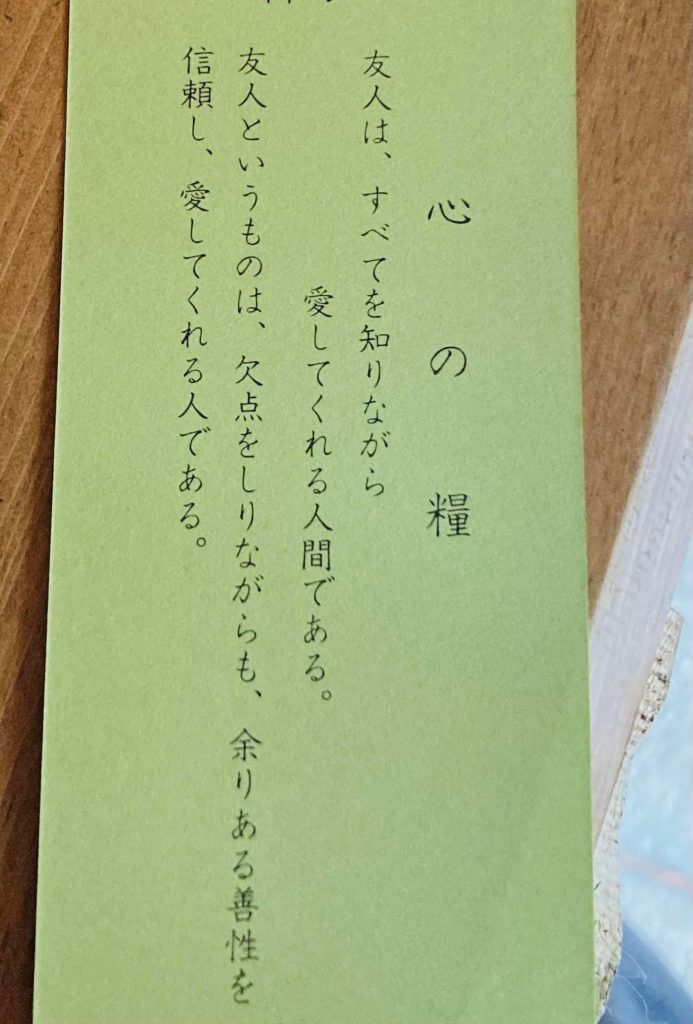 心の糧
友人は、すべてを知りながら
愛してくれる人間である。
友人というものは、欠点をしりながらも、余りある善性を
信頼し、愛してくれる人である。